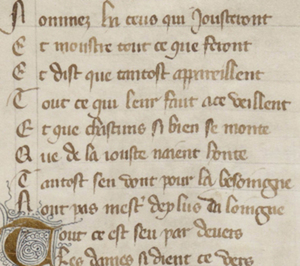 Nommez la ceus qui Jousteront
Et moustre tout ce que feront
Et dist que tantost appareillent
Tout ce qui leur faut a ce veillent
Et que chascuns si bien se monte
Que de la iouste naient honte
Tantost sen vont pour la besoingne
Nont pas mest de plus da loingne
Tout ce est seu par deuers
Les dames si dient ce vers